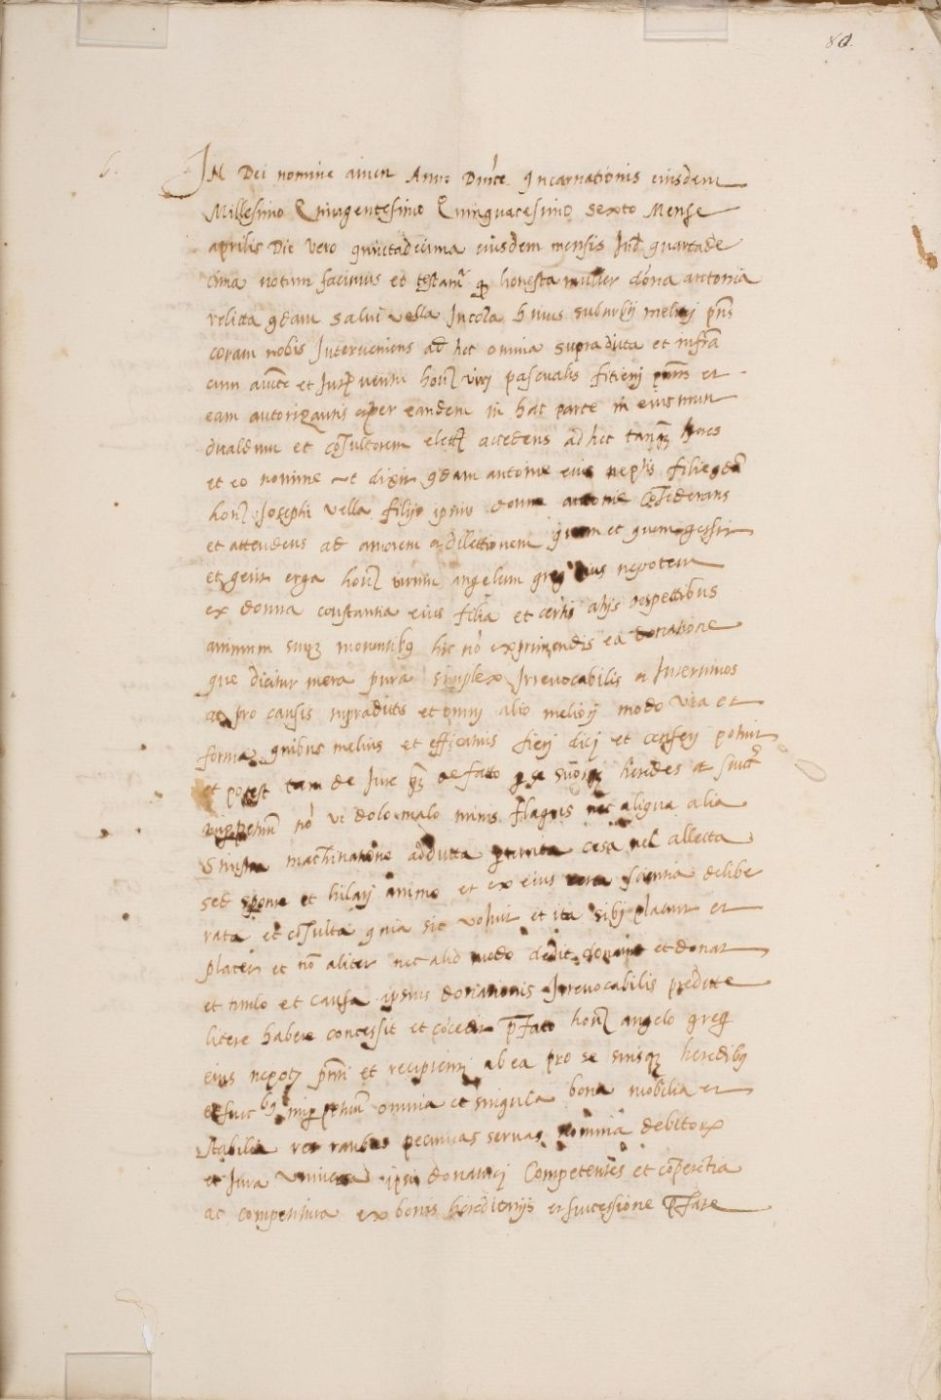 80.
6.
In Dei nomine amen Anno Dnice Incarnationis eiusdem
Millesimo Quingentesimo Quinquagesimo sexto Mense
aprilis Die vero quinctadecima eiusdem mensis Ind quartade
cima notum facimus et testam honesta mulier dona antonia
relicta qdam Salvi vella Incola huius suburbij melivij pns
coram nobis Interveniens ad hec omnia supradicta et infra
cum aucte et hon viri pascualis fitienj pntis et
eam autorizantis eandem in hac parte in eius mun
dualdum et cosultorem elect accedens ad hec tanq heres
et eo nomine ut dixit qdam antonie eius neptis filie qda
hon Josephi vella filij ipsius donne antonie Cosiderans
et attendens ad amorem et dillectionem quam et quem gessit
et gerit erga hon virum angelum greg eius nepotem
ex donna constantia eius filia et certis alijs respectibus
animum suu moventibq hic no exprimendis ea donatione
que dicitur mera pura simplex Irrevocabilis et Inter vivos
ac pro causis supradictis et omnj alio meliorj modo via et
forma quibus melius et efficatius fierj dicj et censerj potuit
et potest tam de Jure q de facto p se suosq heredes et succ
no vi dolo malo minis flagris nec aliqua alia
Sinistra machinatione adducta cosa vel allecta
sed sponte et hilarj animo et ex eius certa scientia delibe
rata et cosulta quia sic voluit et ita sibj placuit et
placet et no aliter nec alio modo dedit donavit et donat
et titulo et causa ipsius donationis Irrevocabilis predicte
licere habere concessit et cocedit pfato hon angelo greg
eius nepotj pntj et recipientj ab ea pro se suisq heredibq
et succbq imppetuu omnia et singula bona mobilia et
stabilia res raubas pecunias servas nomina debitorx
et Jura universa ipsi donatricj Competentes et copetentia
ac competitura ex bonis hereditarijs et successione pfate